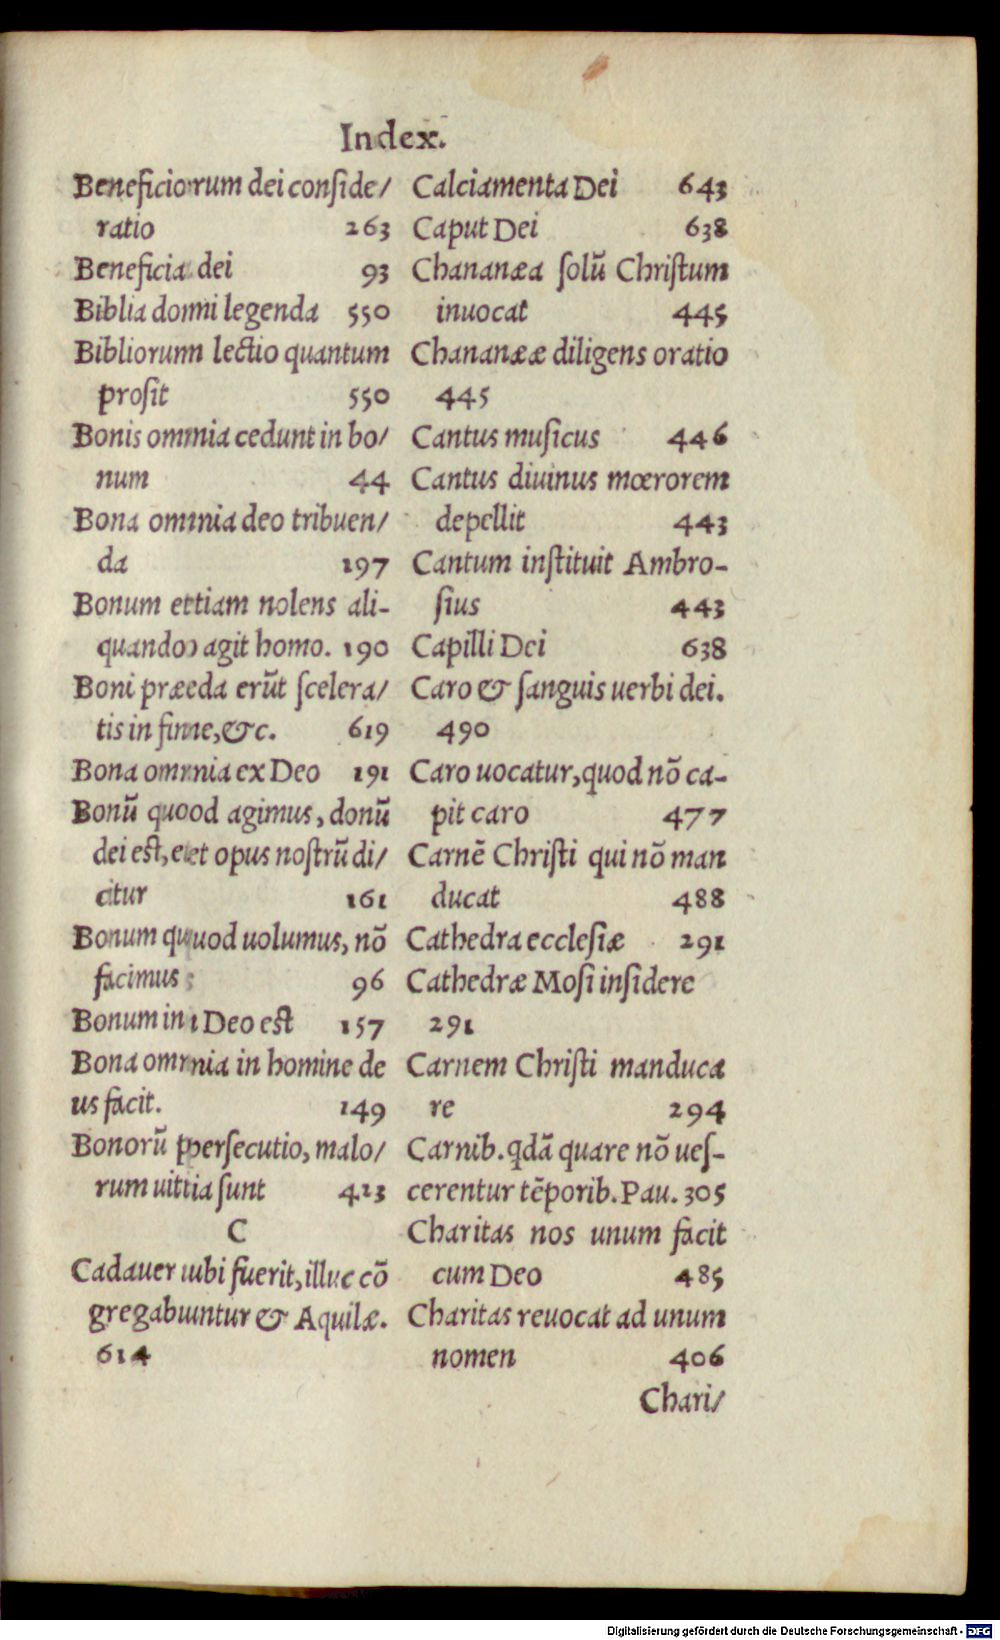 Index.
Beneficiorum dei conside/
ratio 263
Beneficia dei 93
Biblia domi legenda 550
Bibliorum lectio quantum
prosit 550
Bonis omnia cedunt in bo/
num 44
Bona omnia deo tribuen/
da 197
Bonum etiam nolens ali-
quando agit homo. 190
Boni præda erūt scelera/
tis in fine, &c. 619
Bona omnia ex Deo 191
Bonū quod agimus, donū
dei est, et opus nostrū di/
citur 161
Bonum quod uolumus, nō
facimus 96
Bonum in Deo est 157
Bona omnia in homine de
us facit. 149
Bonorū persecutio, malo/
rum uitia sunt 423
C
Cadauer ubi fuerit, illuc cō
gregabuntur & Aquilæ.
614
Calciamenta Dei 643
Caput Dei 638
Chananæa solū Christum
inuocat 445
Chananææ diligens oratio
445
Cantus musicus 446
Cantus diuinus mœrorem
depellit 443
Cantum instituit Ambro-
sius 443
Capilli Dei 638
Caro & sanguis uerbi dei.
490
Caro uocatur, quod nō ca-
pit caro 477
Carnē Christi qui nō man
ducat 488
Cathedra ecclesiæ 291
Cathedræ Mosi insidere
291
Carnem Christi manduca
re 294
Carnib. qdā quare nō ues-
cerentur tēporib. Pau. 305
Charitas nos unum facit
cum Deo 485
Charitas reuocat ad unum
nomen 406
Chari/
Digitalisierung gefördert durch die Deutsche Forschungsgemeinschaft - DFG